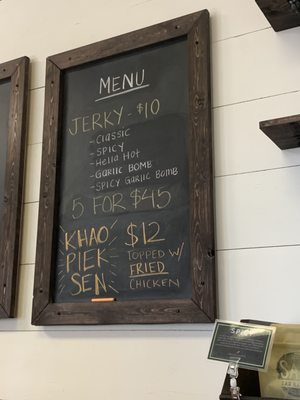 MENU
JERKY - $10
- CLASSIC
- SPICY
- Hella Hot
- GARLIC BOMB
- SPICY GARLIC BOMB
5 FOR $45
KHAO
PIEK
SEN
$12
TOPPED W/
FRIED
CHICKEN
SPICY